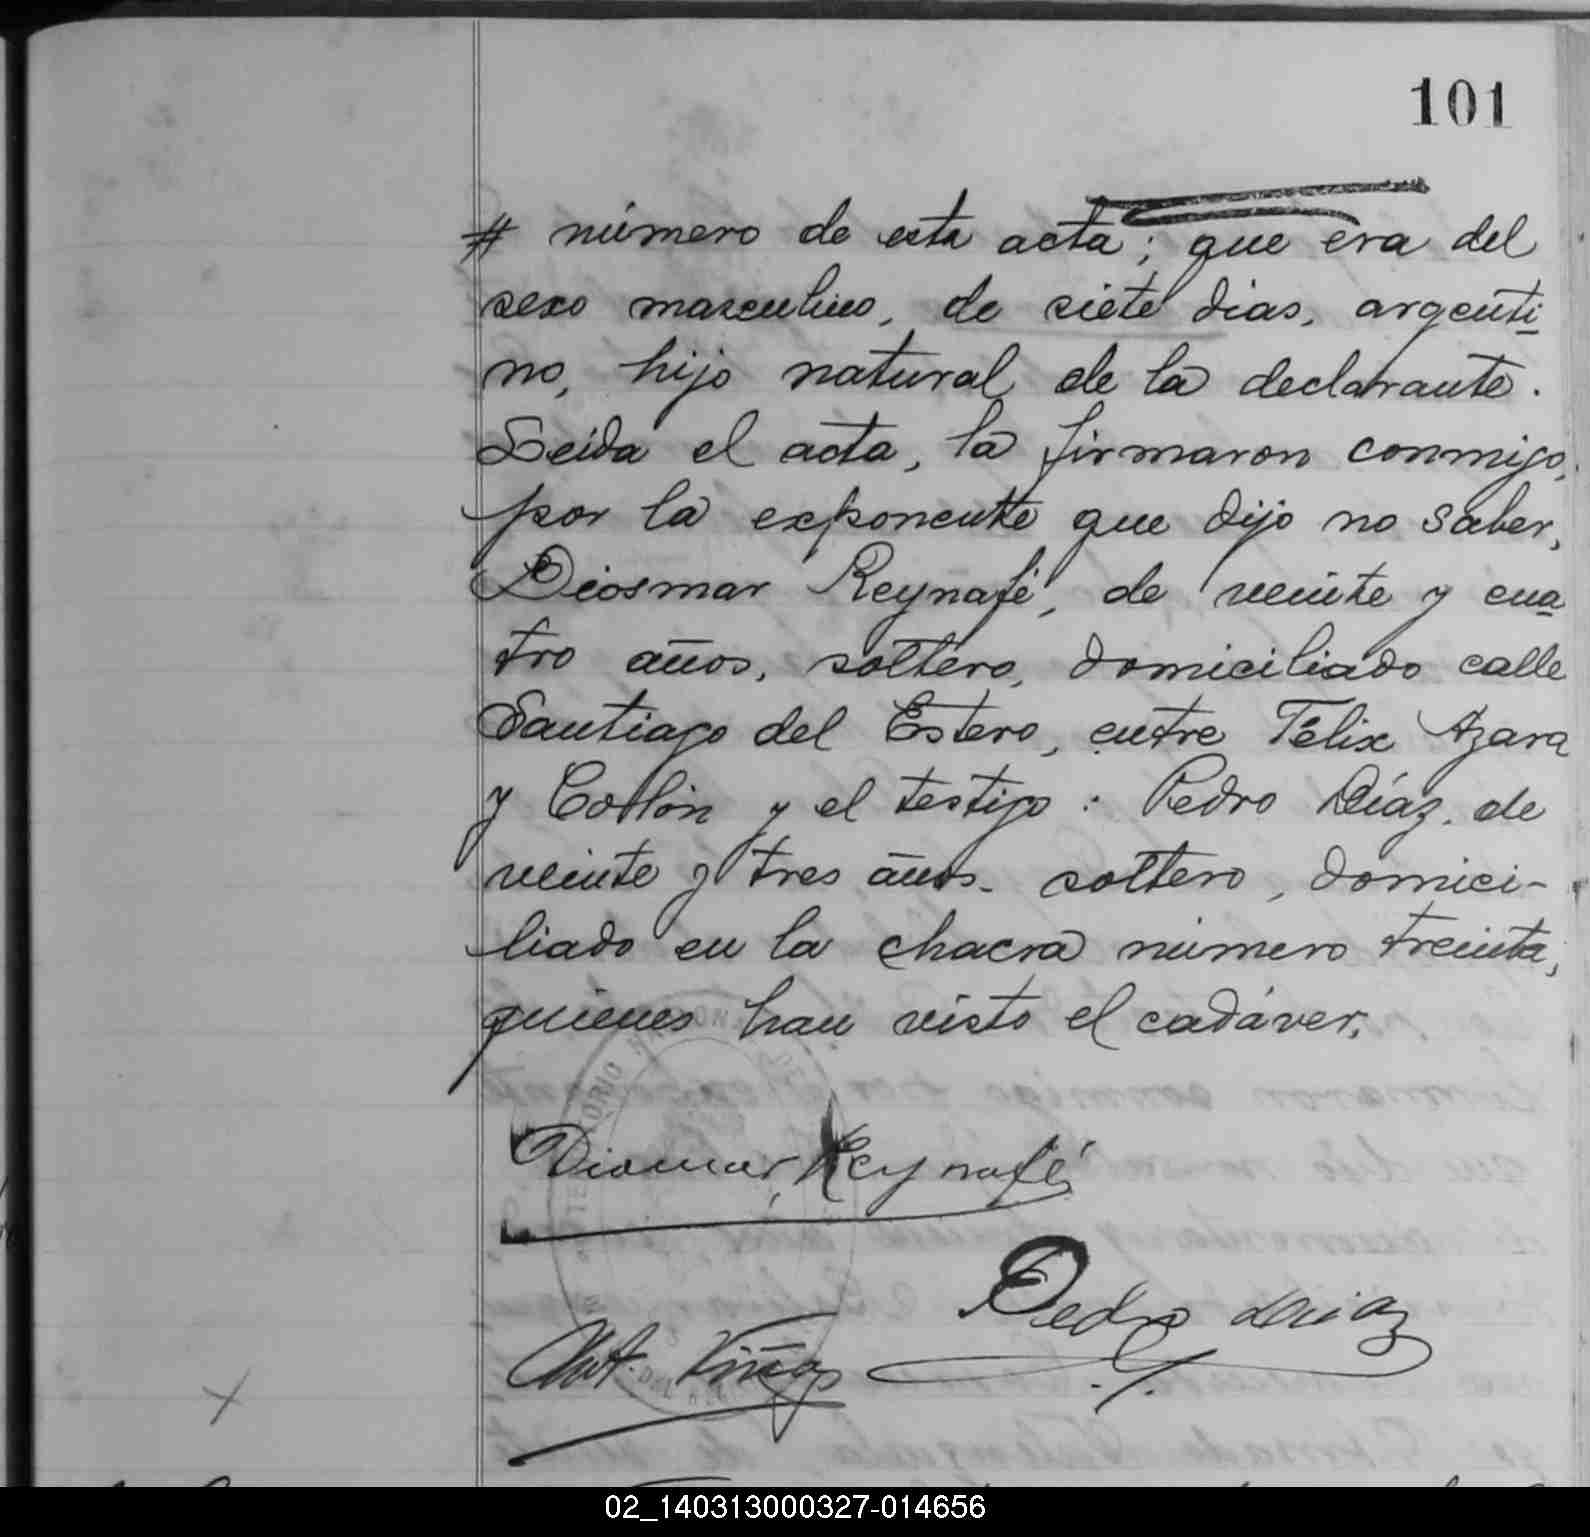 101
# número de esta acta; que era del
sexo masculino, de siete dias, argenti
no, hijo natural de la declarante.
Leida el acta, la firmaron conmigo,
por la exponente que dijo no saber,
Diosmar Reynafé, de veinte y cua
tro años, soltero, domiciliado calle
Santiago del Estero, entre Félix Azara
y Collón y el testigo: Pedro Díaz, de
veinte y tres años, soltero, domici-
liado en la chacra número treinta,
quienes han visto el cadáver.
Diosmar Reynafé
Pedro Diaz
Ant. Viñas
02_140313000327-014656